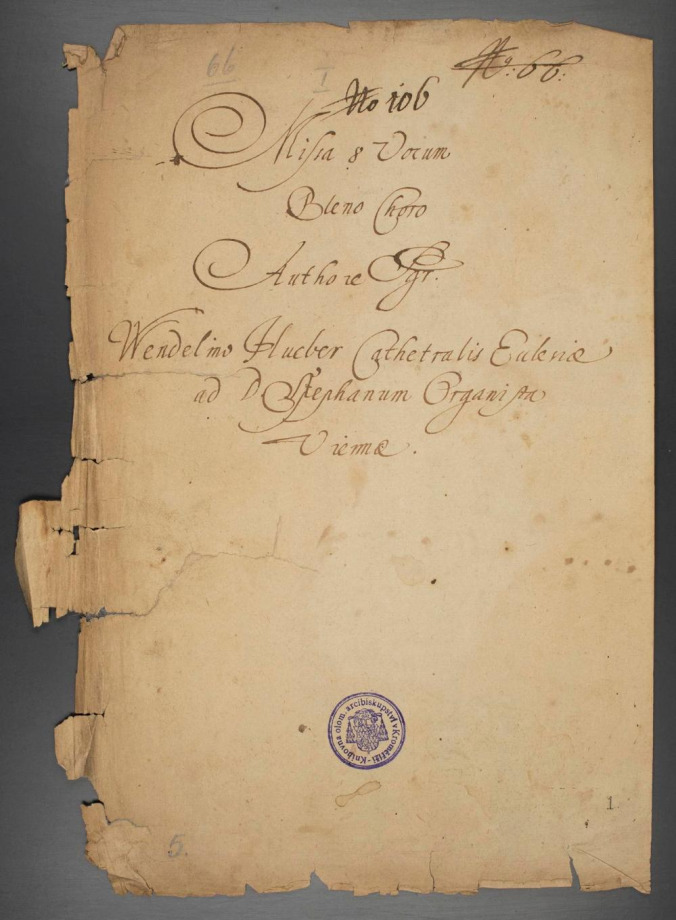 66
1
No: 66:
No 106
Missa 8 Vocum
Pleno Choro
Authore Sgr.
Wendelino Hueber Cathetralis Eclesiæ
ad D Stephanum Organista
Viennæ.
Knihovna olom. arcibiskupství v Kroměříži
1
5.